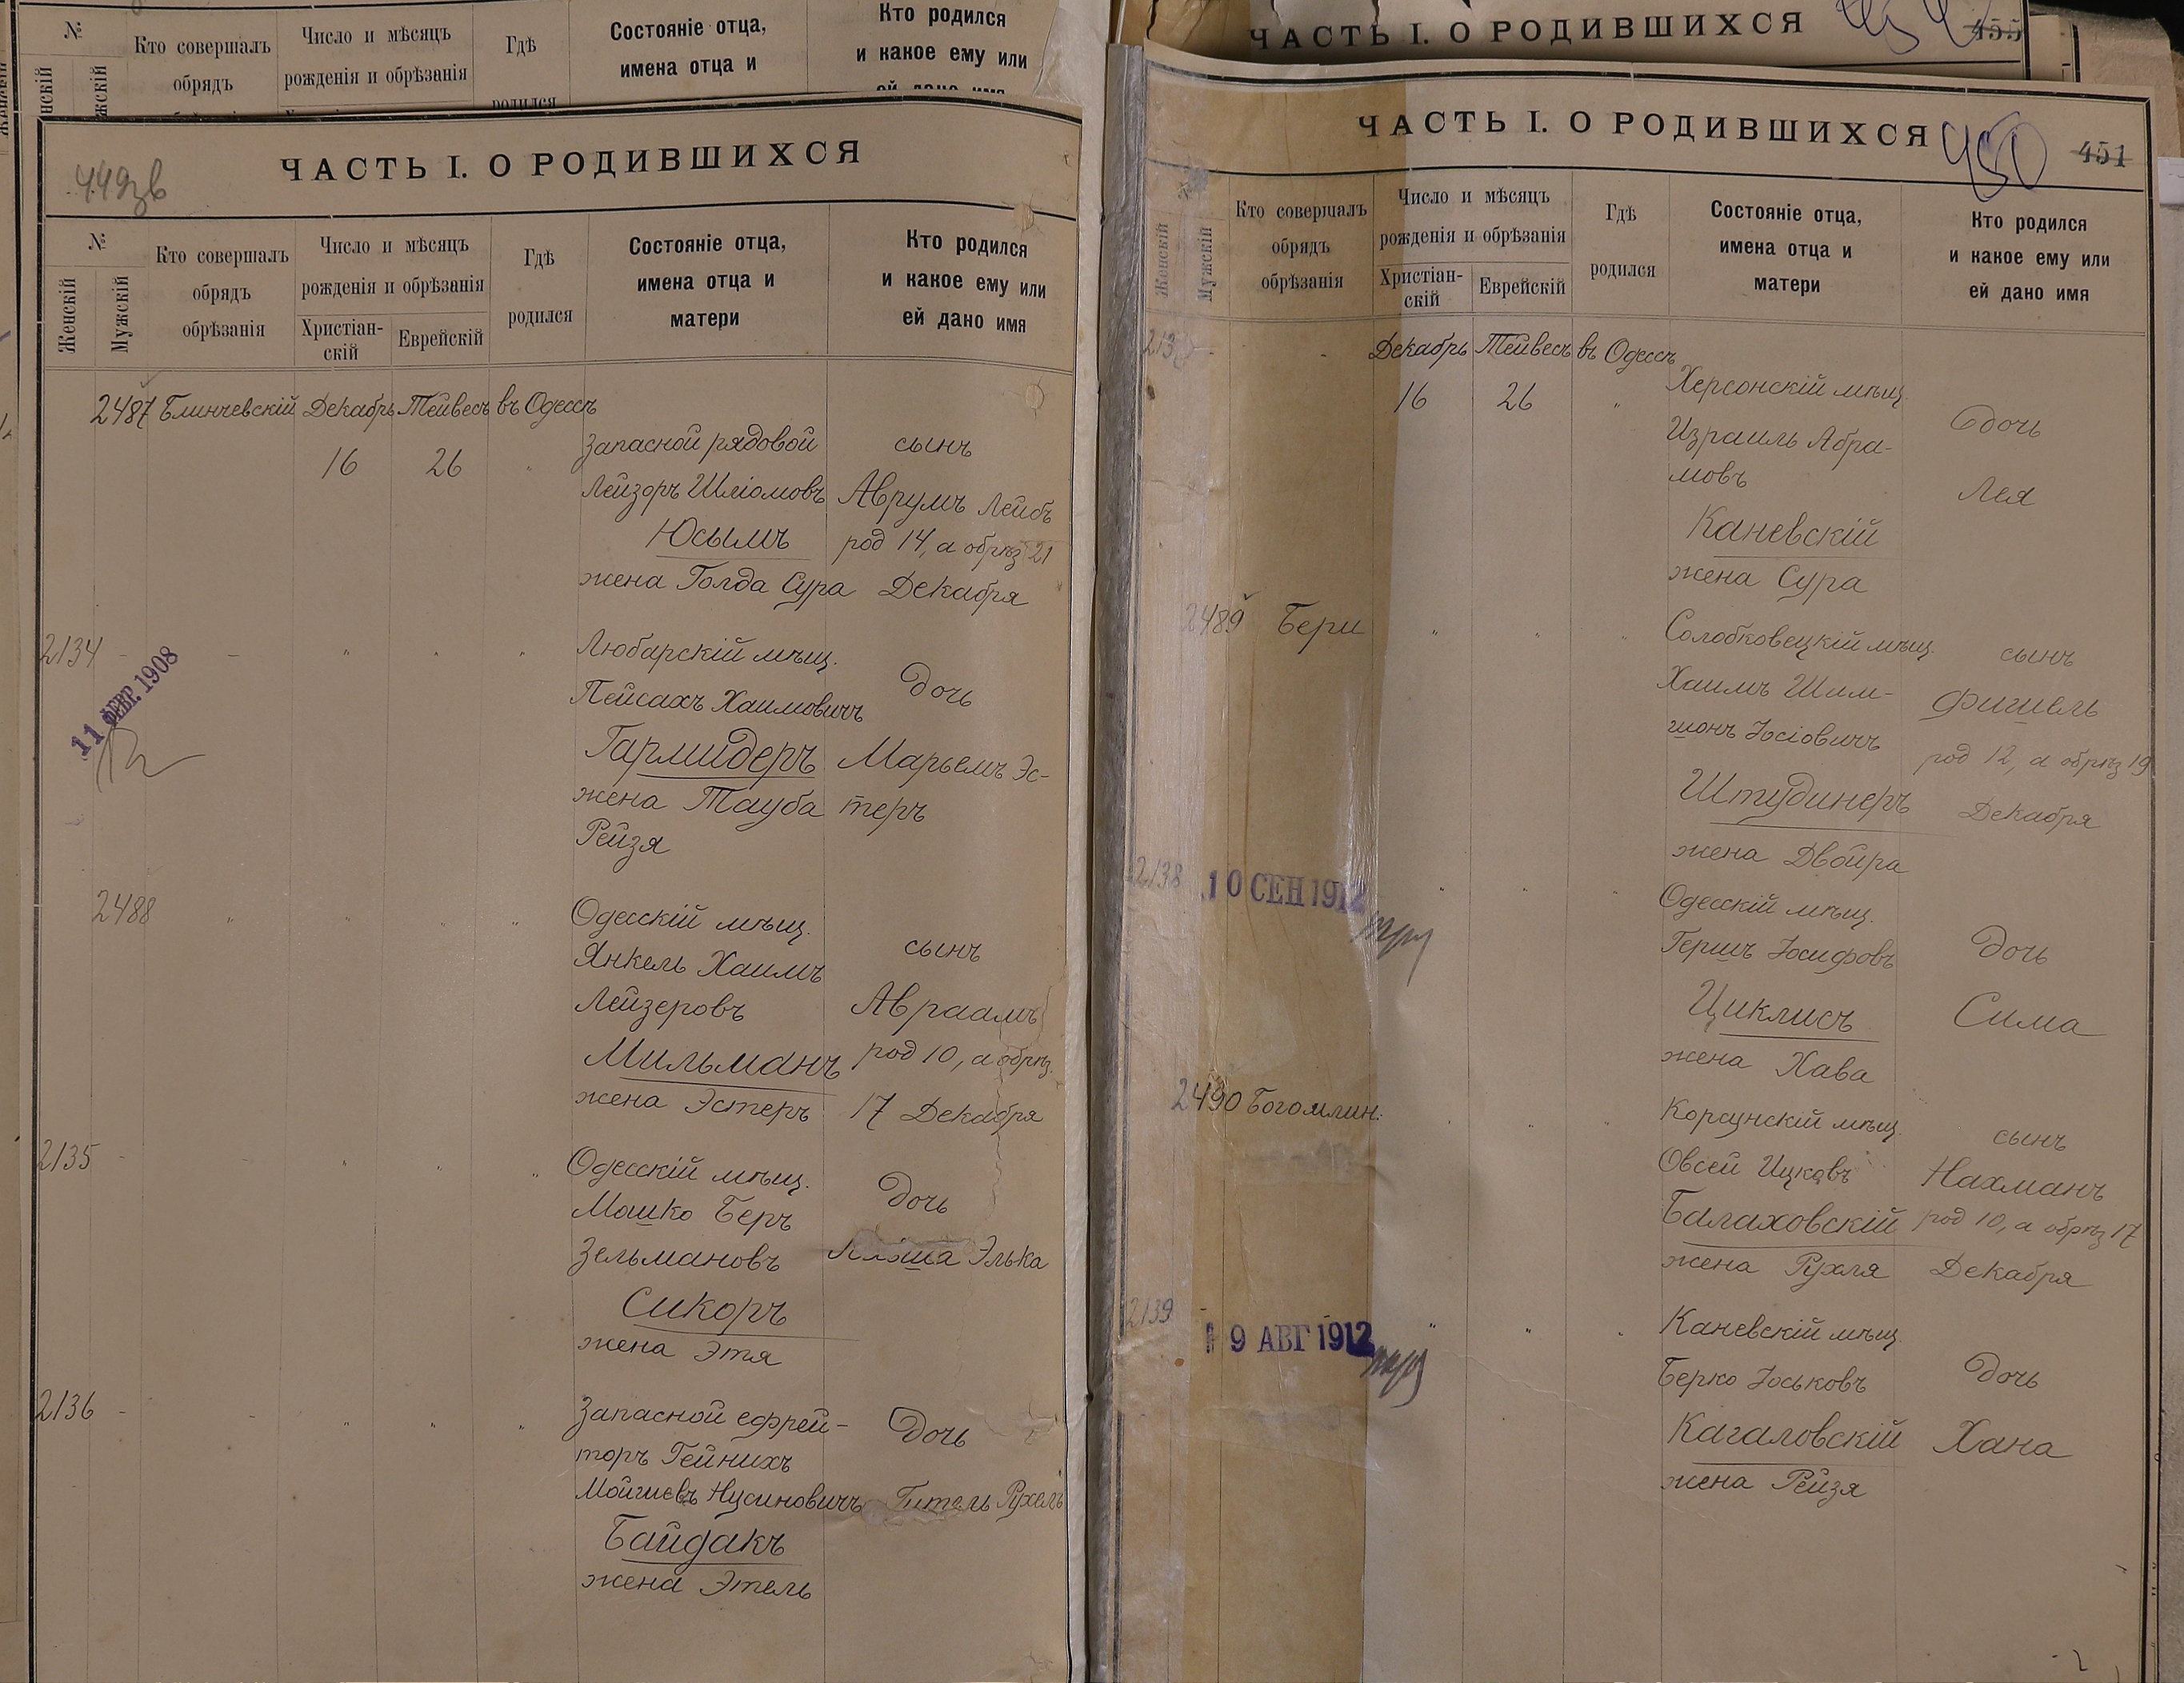 №
Женскій
Мужскій
Кто совершалъ
обрядъ
Число и мѣсяцъ
рожденія и обрѣзанія
Гдѣ
родился
Состояніе отца,
имена отца и
Кто родился
и какое ему или
ей дано имя
ЧАСТЬ I. О РОДИВШИХСЯ
455
ЧАСТЬ I. О РОДИВШИХСЯ
449зв
№
Женскій
Мужскій
Кто совершалъ
обрядъ
обрѣзанія
Число и мѣсяцъ
рожденія и обрѣзанія
Христіан-
скій
Еврейскій
Гдѣ
родился
Состояніе отца,
имена отца и
матери
Кто родился
и какое ему или
ей дано имя
2487 Блинчевскій Декабрь Тейвесъ въ Одессѣ
16 26 "
Запасной рядовой
Лейзоръ Шліомовъ
Юсымъ
жена Голда Сура
сынъ
Аврумъ Лейбъ
род 14, а обрѣз 21
Декабря
2134 - - " " "
11 ФЕВ. 1908
Любарскій мѣщ.
Пейсахъ Хаимовичъ
Гармидеръ
жена Тауба
Рейзя
Дочь
Марьемъ Эс-
теръ
2488 " " " "
Одесскій мѣщ.
Янкель Хаимъ
Лейзеровъ
Мильманъ
жена Эстеръ
сынъ
Авраамъ
род 10, а обрѣз.
17 Декабря
2135 - - " " "
Одесскій мѣщ.
Мошко Беръ
Зельмановъ
Сикоръ
жена Этя
Дочь
Элька
2136 - - " " "
Запасной ефрей-
торъ Гейнихъ
Мойшевъ Нусиновичъ
Байдакъ
жена Этель
Дочь
Гитель Рухель
ЧАСТЬ I. О РОДИВШИХСЯ
450
451
№
Женскій
Мужскій
Кто совершалъ
обрядъ
обрѣзанія
Число и мѣсяцъ
рожденія и обрѣзанія
Христіан-
скій
Еврейскій
Гдѣ
родился
Состояніе отца,
имена отца и
матери
Кто родился
и какое ему или
ей дано имя
- - Декабрь Тейвесъ въ Одессѣ
16 26 "
Херсонскій мѣщ.
Израиль Абра-
мовъ
Каневскій
жена Сура
Дочь
Лея
2489 Бери " " "
Солобковецкій мѣщ.
Хаимъ Шим-
шонъ Іосіовичъ
Штудинеръ
жена Двойра
сынъ
Фишель
род 12, а обрѣз 19
Декабря
2138 " " "
10 СЕН 1912
Одесскій мѣщ.
Гершъ Іосифовъ
Циклисъ
жена Хава
Дочь
Сима
2490 Богомлин. " " "
Корсунскій мѣщ.
Овсей Ицковъ
Балаховскій
жена Рухля
сынъ
Нахманъ
род 10, а обрѣз 17
Декабря
2139 - " " "
9 АВГ 1912
Каневскій мѣщ.
Берко Іоськовъ
Кагаловскій
жена Рейзя
Дочь
Хана